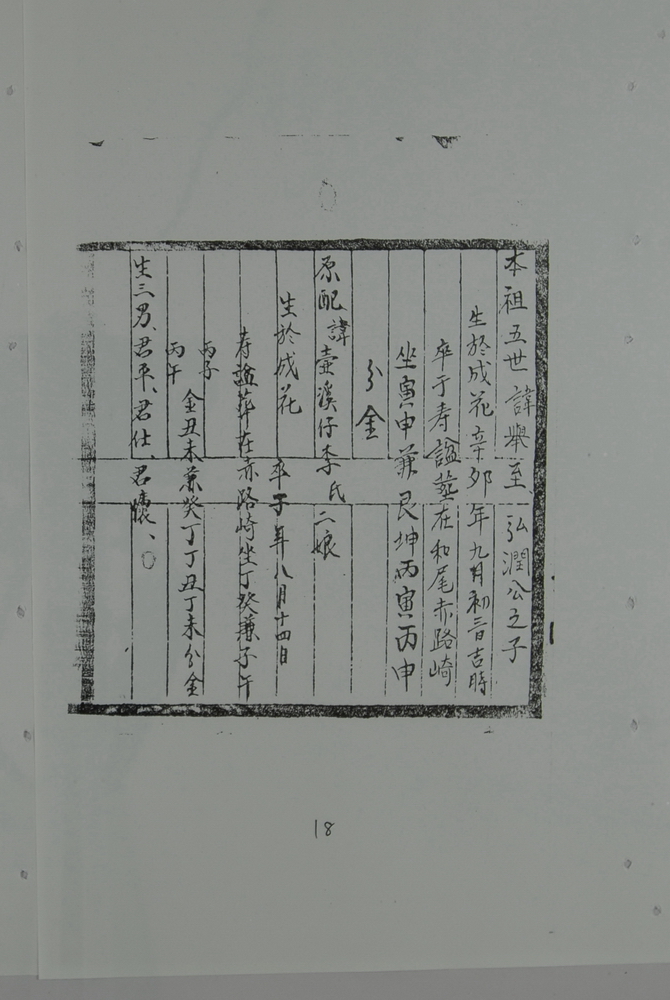 本祖五世諱舉至 弘潤公之子
生於成花辛夘年九月初三日吉時
卒于寿諡葬在和尾赤路崎
坐寅申兼艮坤丙寅丙申
分金
原配諱壺溪仔李氏二娘
生於成花 卒子年八月十四日
寿諡葬在赤路崎坐丁癸兼子午
丙子
丙午
金丑未兼癸丁丁丑丁未分金
生三男、君平、君仕、君懷、〇
18